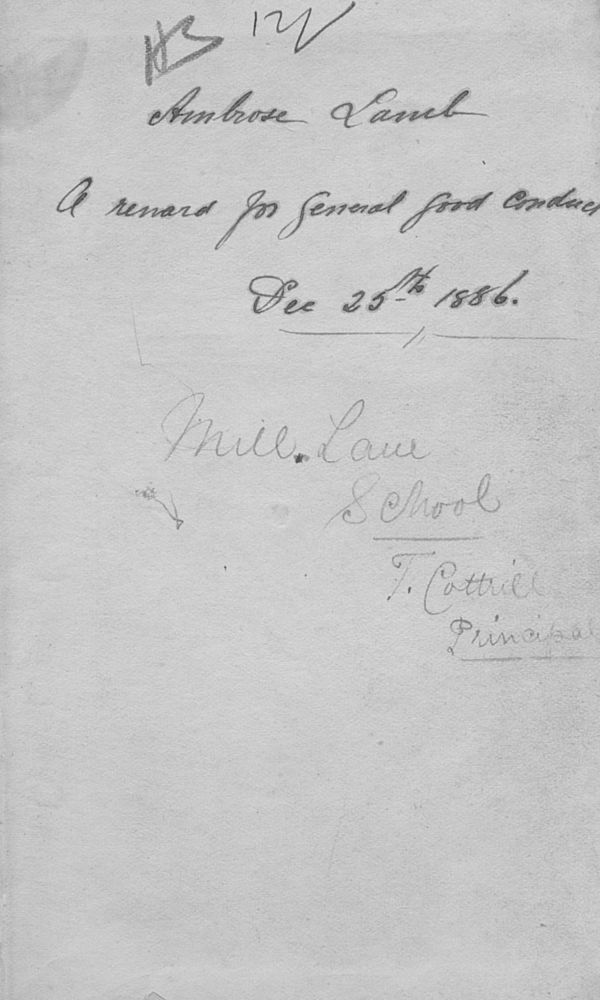 12/
Ambrose Lamb
A reward for general good conduct
Dec 25th 1886.
Mill Lane
School
T. Cottrill
Principal